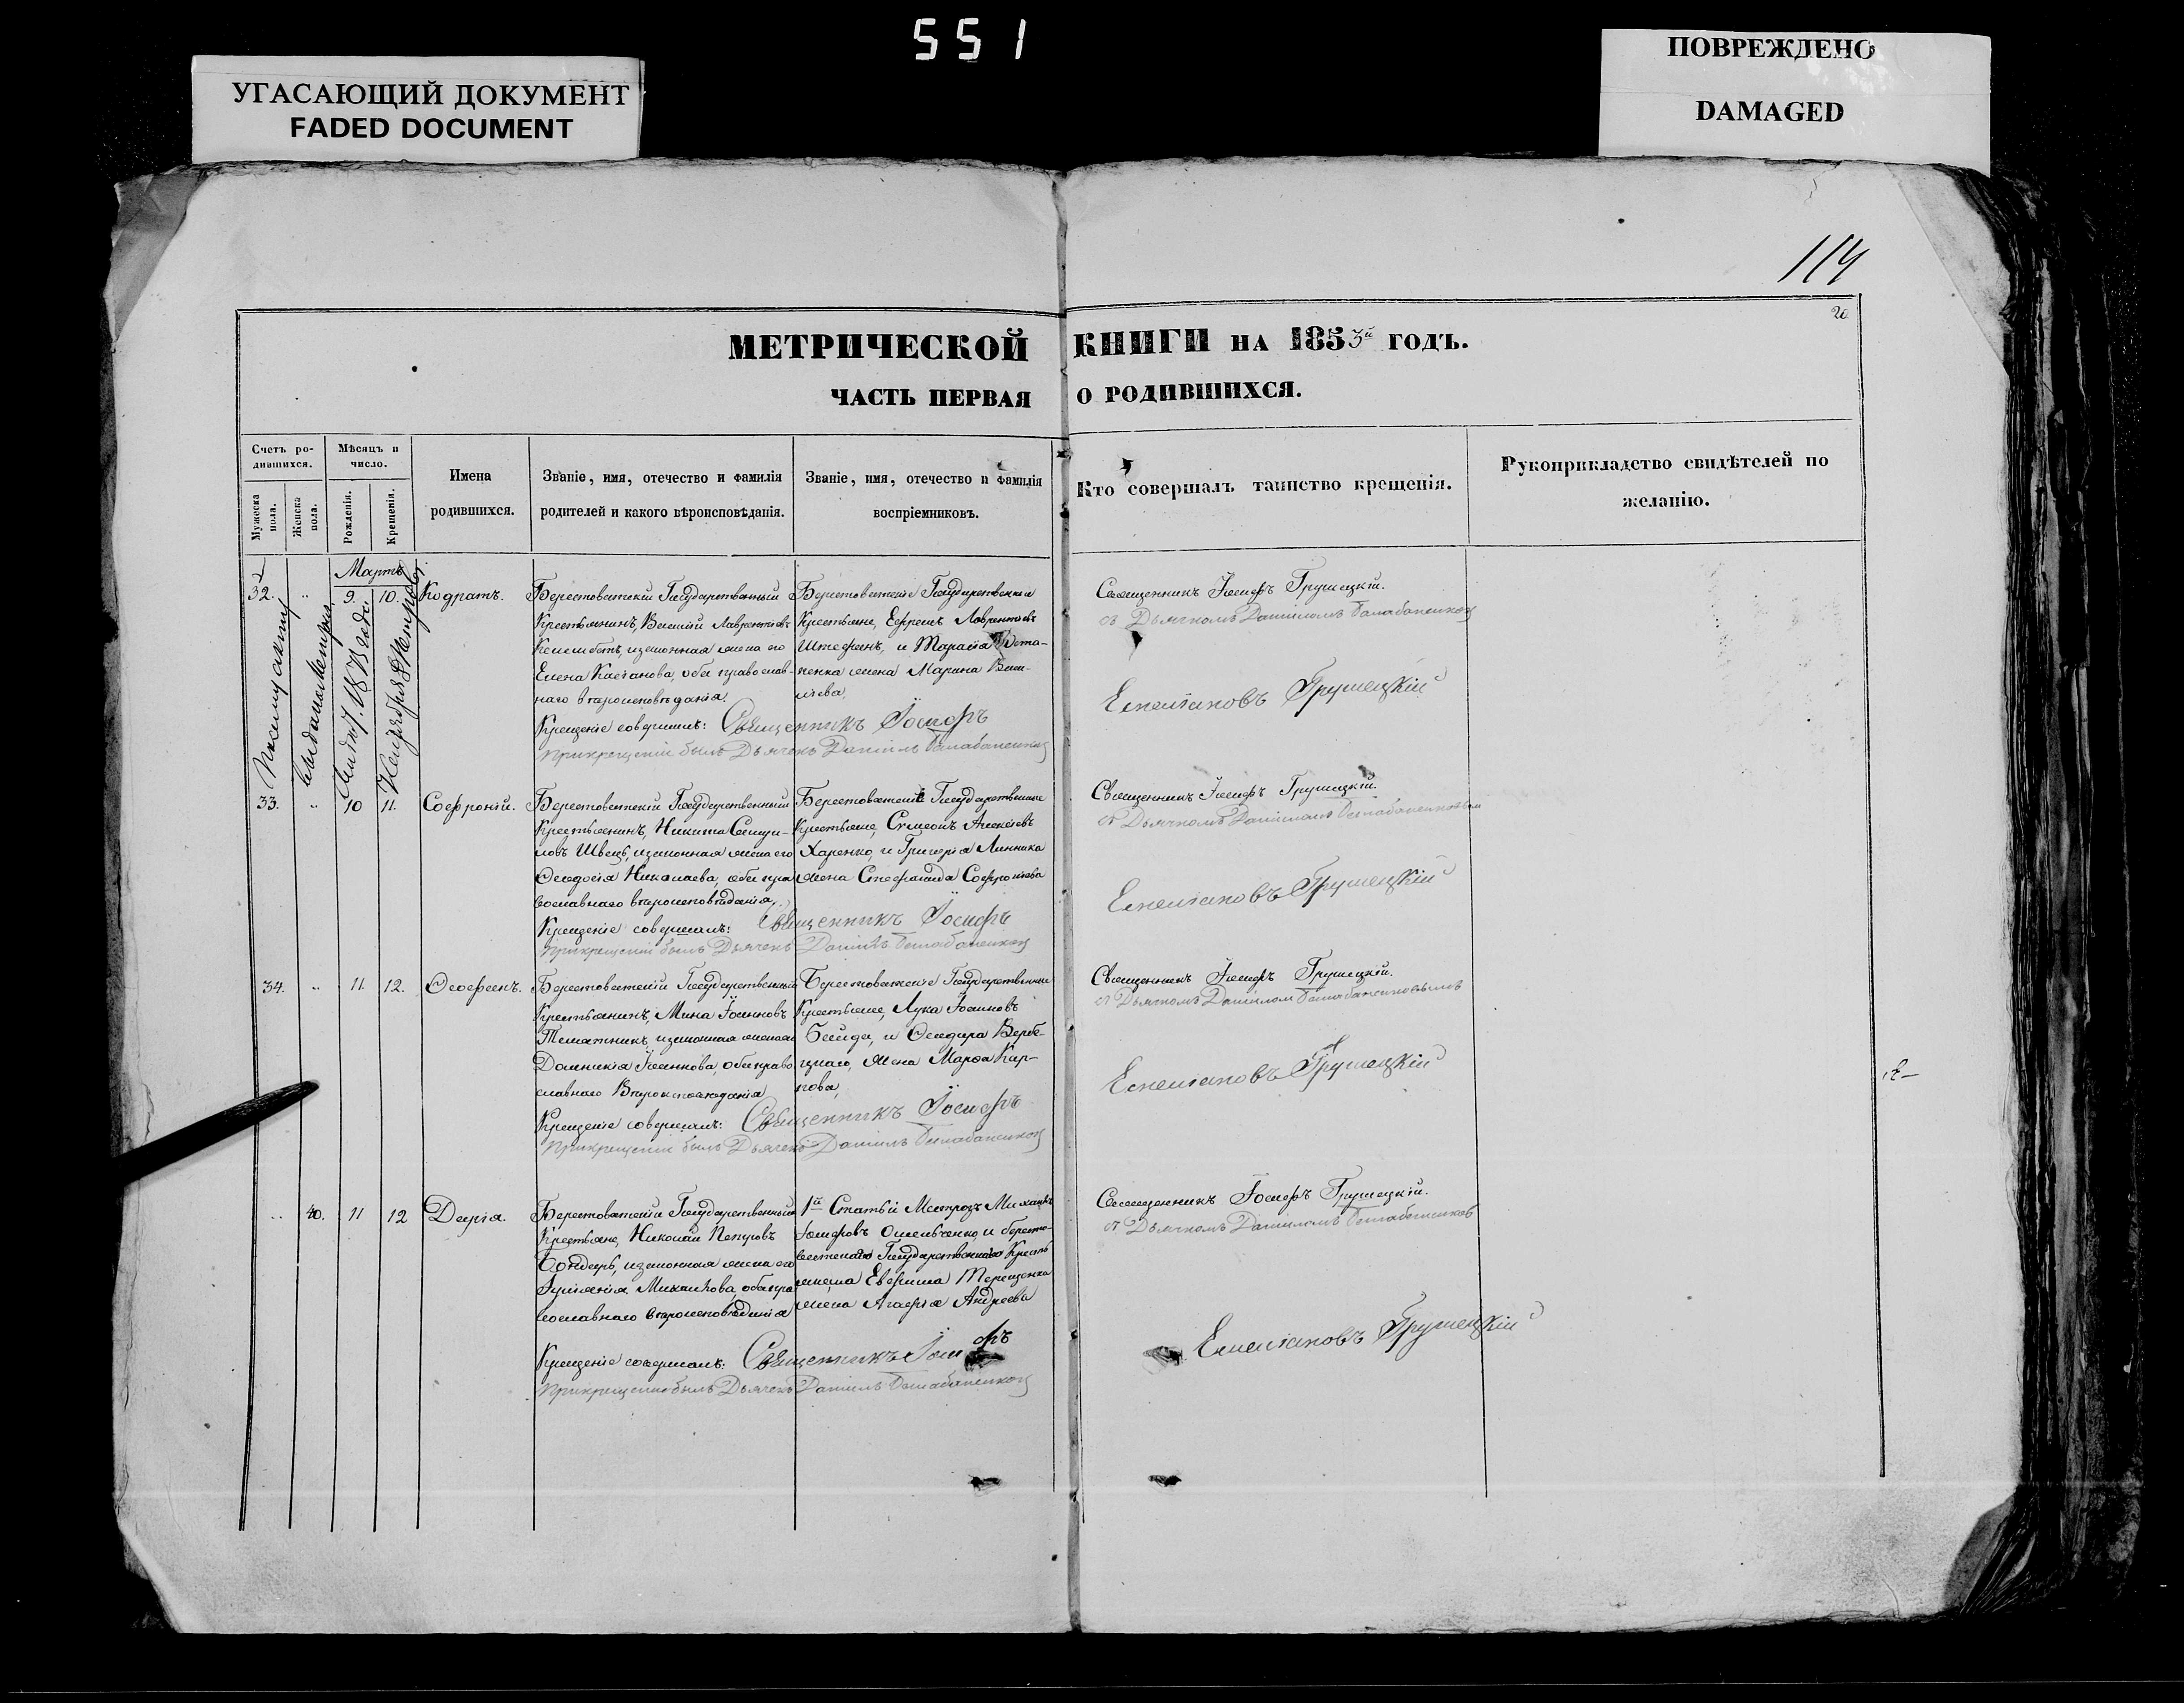 551
УГАСАЮЩИЙ ДОКУМЕНТ
FADED DOCUMENT
ПОВРЕЖДЕНО
DAMAGED
114
20
МЕТРИЧЕСКОЙ КНИГИ НА 1853й ГОДЪ.
ЧАСТЬ ПЕРВАЯ О РОДИВШИХСЯ.
Счетъ ро-
дившихся.
Мужеска пола.
Женска пола.
Мѣсяцъ и
число.
Рожденія.
Крещенія.
Имена
родившихся.
Званіе, имя, отечество и фамилія
родителей и какого вѣроисповѣданія.
Званіе, имя, отечество и фамилія
воспріемниковъ.
Кто совершалъ таинство крещенія.
Рукоприкладство свидѣтелей по
желанію.
Мартъ
По сему акту
выдана метрика
32. " 9. 10. Кодратъ.
Берестоватскій Государственный
Крестьянинъ, Василій Лаврентіевъ
законная жена его
Елена Касіанова, оба православ-
наго вѣроисповѣданія.
Крещеніе совершилъ: Священникъ Іосифъ
При крещеніи былъ Дьячекъ Даніилъ
Берестоватскіе Государственные
Крестьяне, Ефремъ Лаврентіевъ
и Тарасія Оста-
пенка жена Марина Васи-
ліева,
Священникъ Іосифъ Грушецкій.
съ Дьячкомъ Даніиломъ
Емеліановъ Грушецкій
33. " 10 11. Софроній.
Берестоватскій Государственный
Крестьянинъ, Никита Самуи-
ловъ Швець, изаконная жена его
Ѳеодосія Николаева, оба пра
вославнаго вѣроисповѣданія,
Крещеніе совершилъ: Священникъ Іосифъ
При крещеніи былъ Дьячекъ Даніилъ
Берестоватскіе Государственные
Крестьяне, Симеонъ Алексѣевъ
Харенко, и Григорія Линника
жена Стефанида Софроніева
Священникъ Іосифъ Грушецкій.
съ Дьячкомъ Даніиломъ
Емеліановъ Грушецкій
34. " 11. 12. Ѳеофанъ.
Берестоватскій Государственный
Крестьянинъ, Мина Іоанновъ
изаконная жена его
Домникія Іоаннова, оба право
славнаго Вѣроисповѣданія
Крещеніе совершилъ: Священникъ Іосифъ
При крещеніи былъ Дьячекъ Даніилъ
Берестоватскіе Государственные
Крестьяне, Лука Іоанновъ
Бейда, и Ѳеодора Верб-
жена Марѳа Кар-
пова,
Священникъ Іосифъ Грушецкій.
съ Дьячкомъ Даніиломъ
Емеліановъ Грушецкій
" 40. 11 12 Дарія.
Берестоватскіи Государственный
Крестьяне, Николай Петровъ
Бондарь, изаконная жена его
Михайлова, оба пра
вославнаго вѣроисповѣданія
Крещеніе совершилъ: Священникъ Іосифъ
При крещеніи былъ Дьячекъ Даніилъ
1й Статьи Матрозъ Михаилъ
Іосифовъ Омельченко, и бересто-
ватскаго Государственнаго Кресть
янина Евфима Терещенка
жена Агафія Андреева
Священникъ Іосифъ Грушецкій.
съ Дьячкомъ Даніиломъ
Емеліановъ Грушецкій